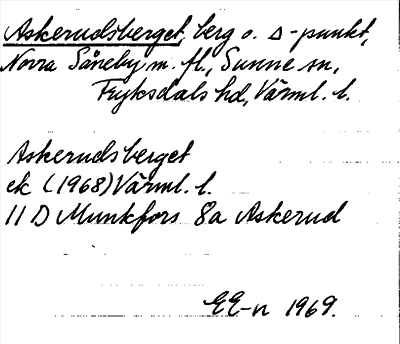 Askerudsberget, berg o. △-punkt,
Norra Såneby m. fl., Sunne sn,
Fryksdals hd, Värml. l.
Askerudsberget
ek (1968) Värml. l.
11 D Munkfors 8a Askerud
EE-n 1969.